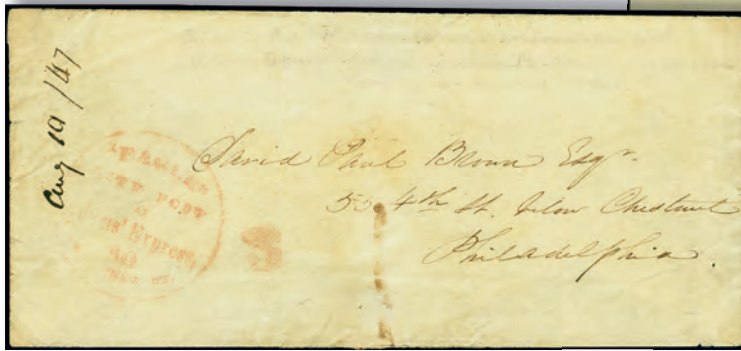 Aug 19 /47
TEAGLE'S
POST
AT
Express,
David Paul Brown Esqr.
55. 4th St. below Chestnut
Philadelphia.